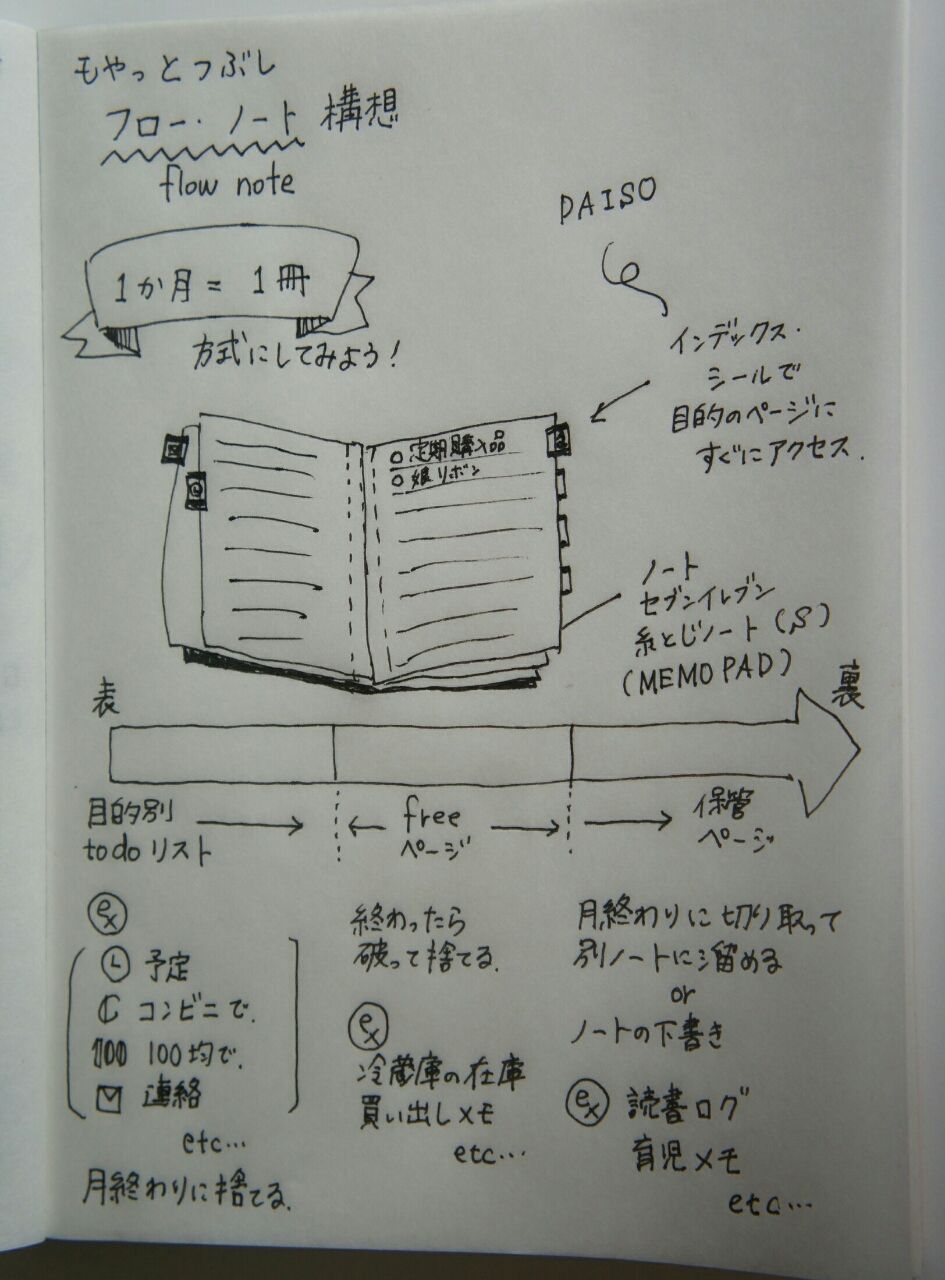 もやっとつぶし
フロー・ノート 構想
flow note
DAISO
1か月 = 1冊
方式にしてみよう!
インデックス・
シールで
目的のページに
すぐにアクセス.
定期購入品
娘リボン
ノート
セブンイレブン
糸とじノート(S)
(MEMO PAD)
表
裏
目的別
todoリスト
free
ページ
保管
ページ
ex
予定
C コンビニで.
100 100均で.
連絡
etc…
月終わりに捨てる.
終わったら
破って捨てる.
ex
冷蔵庫の在庫
買い出しメモ
etc…
月終わりに切り取って
別ノートに溜める
or
ノートの下書き
ex 読書ログ
育児メモ
etc…